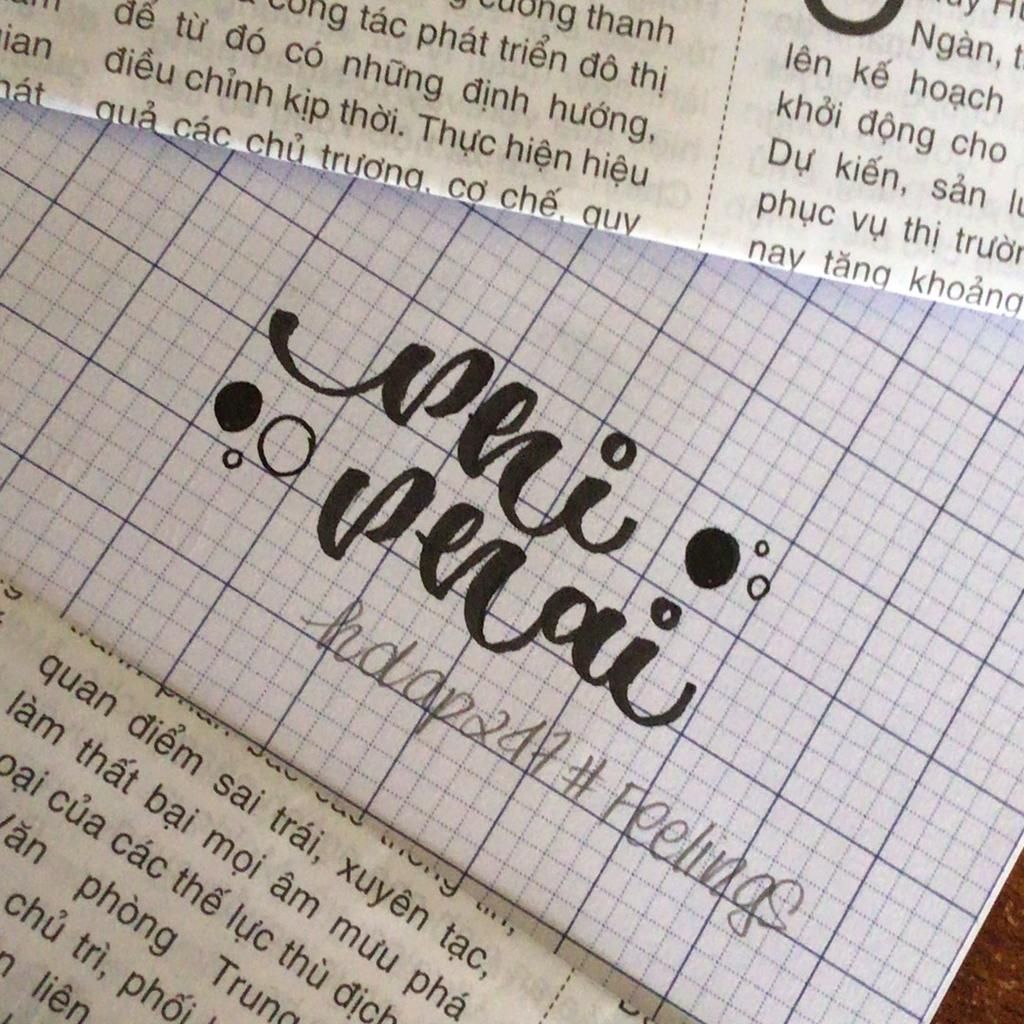 cường thanh
công tác phát triển đô thị
để từ đó có những định hướng,
điều chỉnh kịp thời. Thực hiện hiệu
quả các chủ trương, cơ chế, quy
Ngàn,
lên kế hoạch
khởi động cho
Dự kiến, sản
phục vụ thị
nay tăng khoảng
phi
phai
hdap247#Feelings
quan điểm sai trái, xuyên tạc,
làm thất bại mọi âm mưu phá
của các thế lực thù địch
phòng Trung
chủ trì, phối
liên